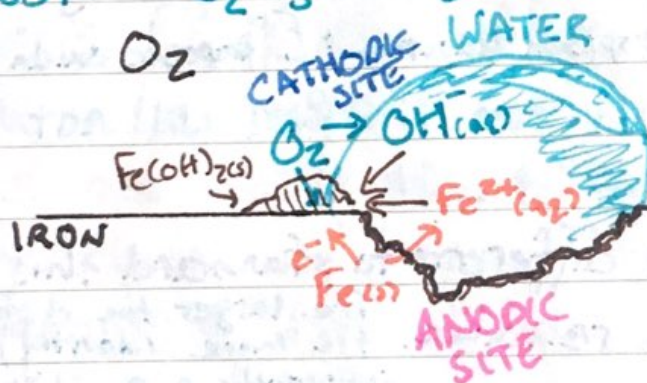 O₂
WATER
CATHODIC
SITE
O₂ → OH⁻(aq)
Fe(OH)₂(s)
Fe²⁺(aq)
IRON
e⁻
Fe(s)
ANODIC
SITE